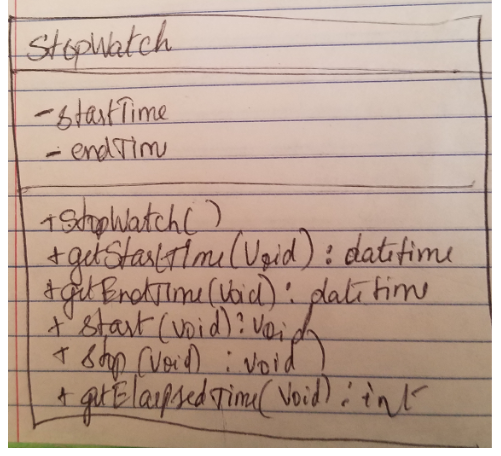 StopWatch
- startTime
- endTim
+ StopWatch()
+ getStartTime(Void) : datetime
+ getEndTime(Void) : datetime
+ Start(void) : void
+ Stop(void) : void
+ getElapsedTime(Void) : int